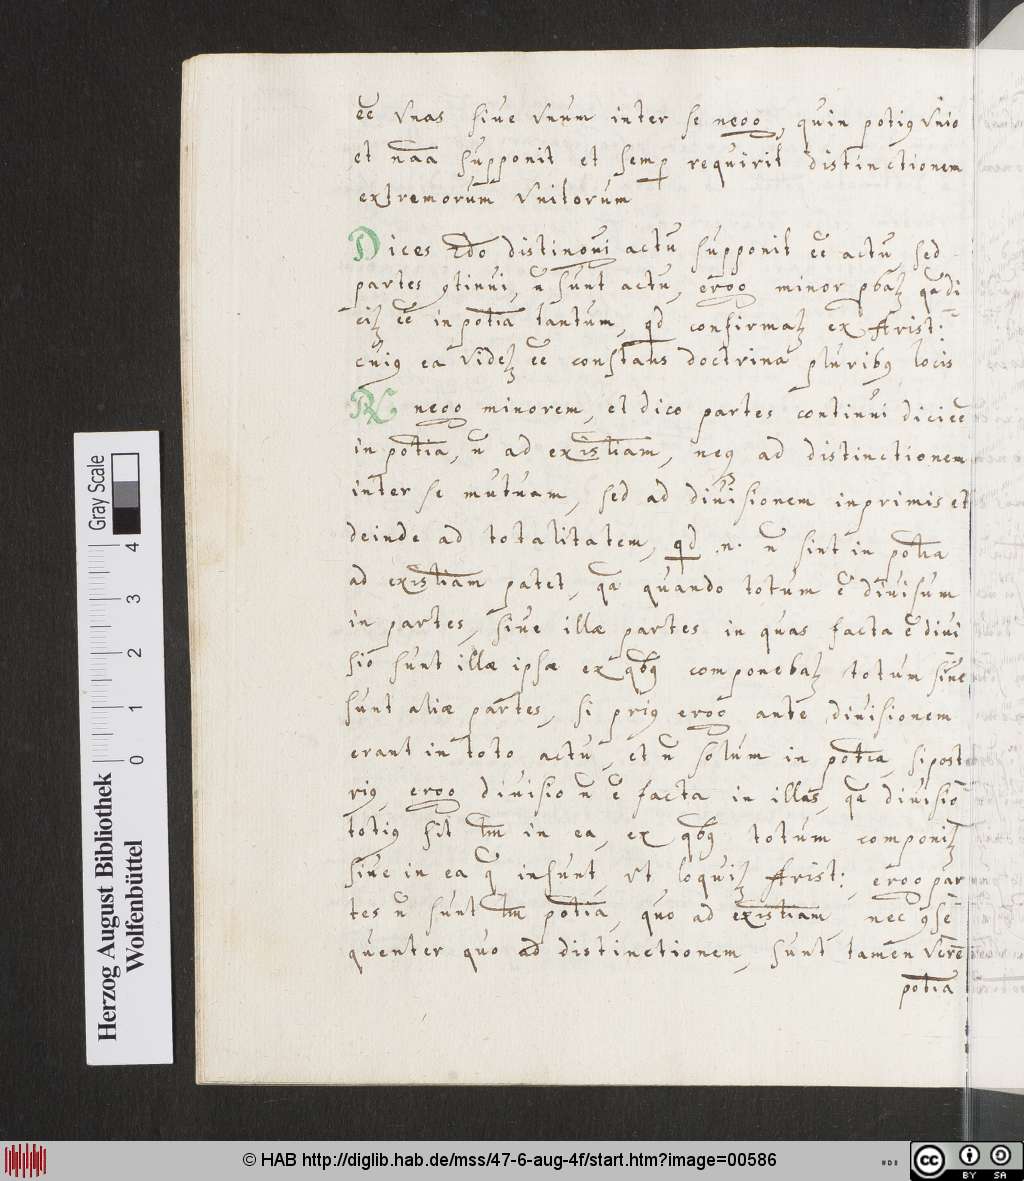 eē vnas siue vnum inter se nego, quin potiꝰ vnio
et naā supponit et semp requirit distinctionem
extremorum vnitorum
Dices 2do distingui actu supponit eē actu, sed
partes ꝯtinui, n̄ sunt actu, ergo minor pbaꝶ qa di
ciꝶ eē in potīa tantum, qd confirmaꝶ ex Arist:
cuiꝰ ea videꝶ eē constans doctrina pluribꝰ locis
R nego minorem, et dico partes continui dici eē
in potīa, n̄ ad existīam, neqꝫ ad distinctionem
inter se mutuam, sed ad diuisionem inprimis et
deinde ad totalitatem, qd .n. n̄ sint in potīa
ad existīam patet, qa quando totum ē diuisum
in partes, siue illæ partes in quas facta ē diui
sio sunt illæ ipsæ ex qbꝰ componebaꝶ totum siue
sunt aliæ partes, si priꝰ ergo ante diuisionem
erant in toto actu, et n̄ solum in potīa, si poste
riꝰ, ergo diuisio n̄ ē facta in illas, qa diuisio
totiꝰ fit tm̄ in ea, ex qbꝰ totum componiꝶ
siue in ea q̄ insunt, vt loquiꝶ Arist: ergo par
tes n̄ sunt tm̄ potīa, quo ad existīam, nec ꝯse
quenter quo ad distinctionem, sunt tamen verē
potīa
Gray Scale
0 1 2 3 4
Herzog August Bibliothek
Wolfenbüttel
© HAB http://diglib.hab.de/mss/47-6-aug-4f/start.htm?image=00586
cc BY SA